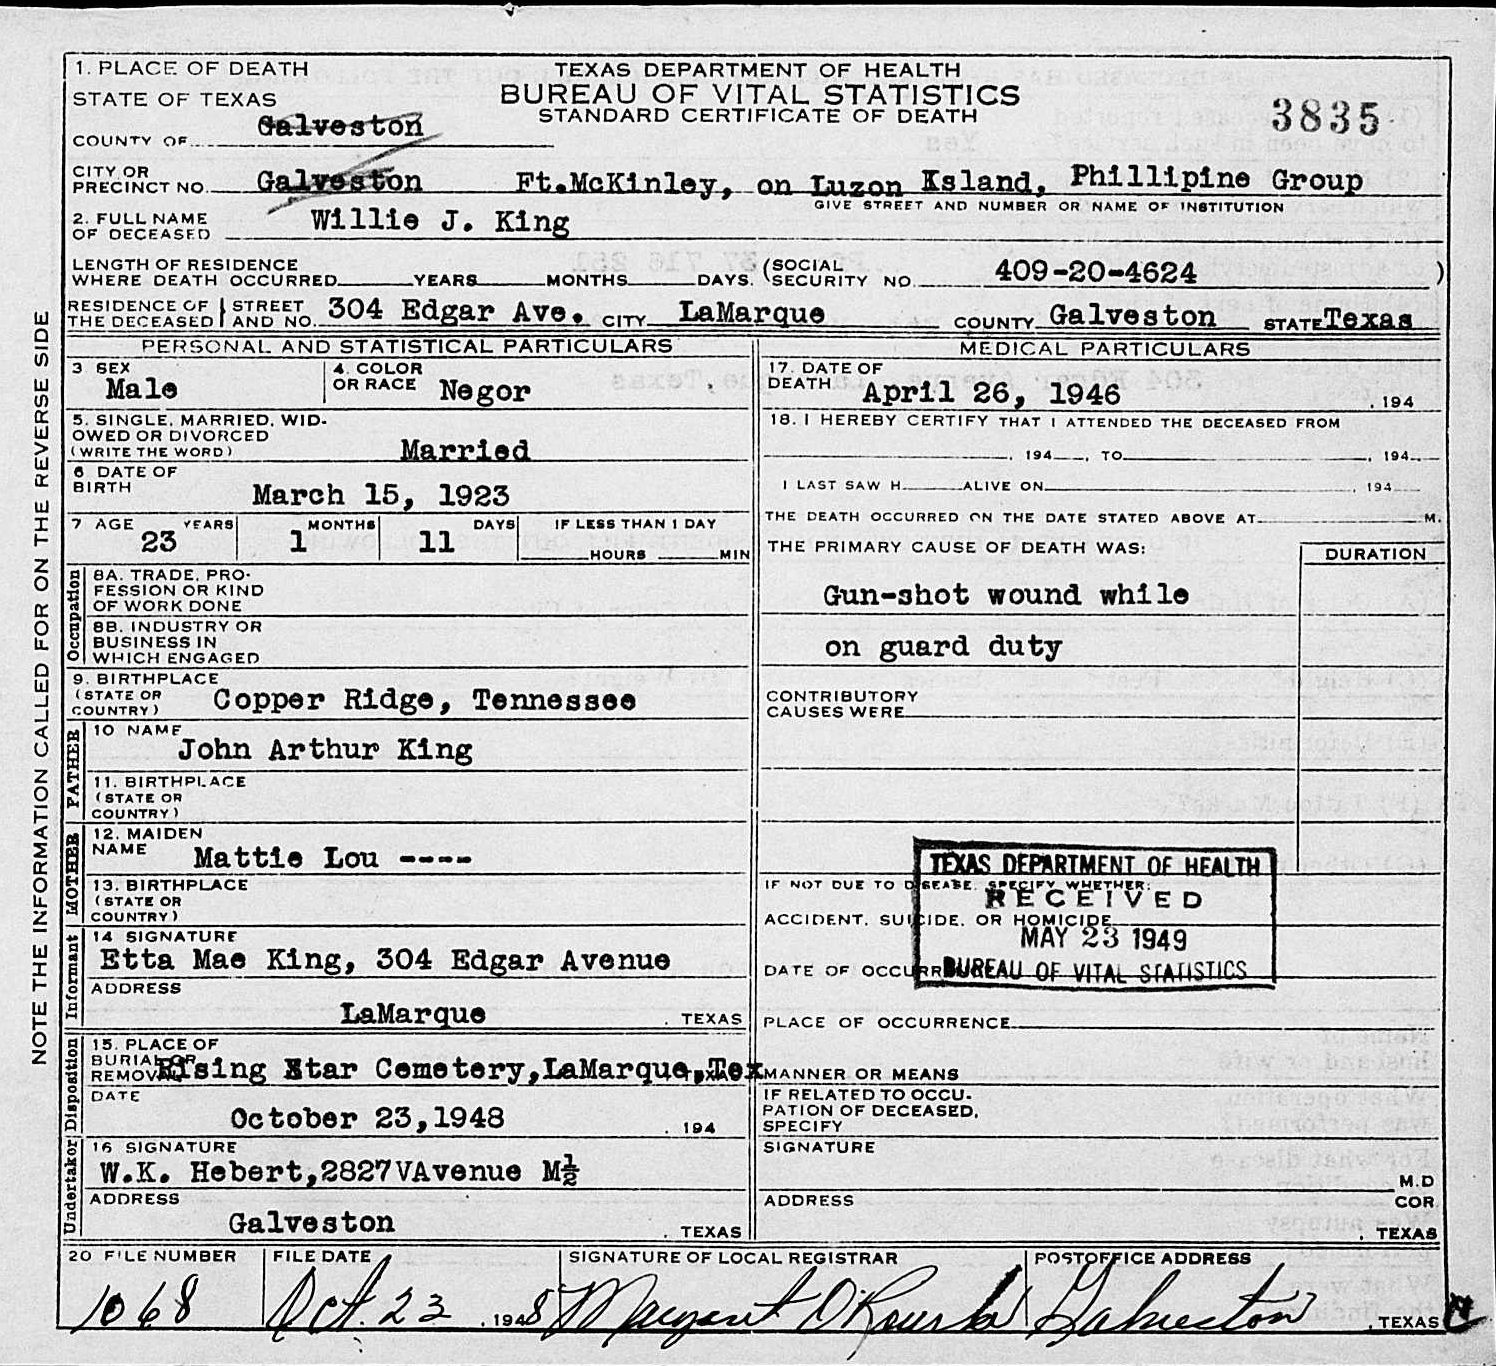 1. PLACE OF DEATH
STATE OF TEXAS
COUNTY OF Galveston
TEXAS DEPARTMENT OF HEALTH
BUREAU OF VITAL STATISTICS
STANDARD CERTIFICATE OF DEATH
3835
CITY OR
PRECINCT NO. Galveston Ft.McKinley, on Luzon Island, Phillipine Group
GIVE STREET AND NUMBER OR NAME OF INSTITUTION
2. FULL NAME
OF DECEASED Willie J. King
LENGTH OF RESIDENCE
WHERE DEATH OCCURRED YEARS MONTHS DAYS. (SOCIAL SECURITY NO. 409-20-4624 )
RESIDENCE OF THE DECEASED STREET AND NO. 304 Edgar Ave. CITY LaMarque COUNTY Galveston STATE Texas
PERSONAL AND STATISTICAL PARTICULARS
3 SEX
Male
4. COLOR
OR RACE Negor
5. SINGLE, MARRIED, WID-
OWED OR DIVORCED
(WRITE THE WORD) Married
6 DATE OF
BIRTH March 15, 1923
7 AGE YEARS MONTHS DAYS IF LESS THAN 1 DAY
23 1 11 HOURS MIN
Occupation
8A. TRADE, PRO-
FESSION OR KIND
OF WORK DONE
8B. INDUSTRY OR
BUSINESS IN
WHICH ENGAGED
9. BIRTHPLACE
(STATE OR
COUNTRY) Copper Ridge, Tennessee
FATHER
10 NAME
John Arthur King
11. BIRTHPLACE
(STATE OR
COUNTRY)
MOTHER
12. MAIDEN
NAME Mattie Lou ----
13. BIRTHPLACE
(STATE OR
COUNTRY)
Informant
14 SIGNATURE
Etta Mae King, 304 Edgar Avenue
ADDRESS
LaMarque . TEXAS
Disposition
15. PLACE OF
BURIAL OR
REMOVAL Rising Star Cemetery,LaMarque,Tex
DATE
October 23,1948 . 194
Undertaker
16 SIGNATURE
W.K. Hebert,2827VAvenue M½
ADDRESS
Galveston . TEXAS
MEDICAL PARTICULARS
17. DATE OF
DEATH April 26, 1946 . 194
18. I HEREBY CERTIFY THAT I ATTENDED THE DECEASED FROM
, 194 , TO , 194
I LAST SAW H ALIVE ON , 194
THE DEATH OCCURRED ON THE DATE STATED ABOVE AT M.
THE PRIMARY CAUSE OF DEATH WAS: DURATION
Gun-shot wound while
on guard duty
CONTRIBUTORY
CAUSES WERE
IF NOT DUE TO DISEASE, SPECIFY WHETHER:
ACCIDENT, SUICIDE, OR HOMICIDE
DATE OF OCCURR
TEXAS DEPARTMENT OF HEALTH
RECEIVED
MAY 23 1949
BUREAU OF VITAL STATISTICS
PLACE OF OCCURRENCE
MANNER OR MEANS
IF RELATED TO OCCU-
PATION OF DECEASED,
SPECIFY
SIGNATURE
M.D
ADDRESS COR
. TEXAS
20 FILE NUMBER FILE DATE SIGNATURE OF LOCAL REGISTRAR POSTOFFICE ADDRESS
1068 Oct. 23 , 1948 Margaret O'Rourke Galveston , TEXAS
NOTE THE INFORMATION CALLED FOR ON THE REVERSE SIDE